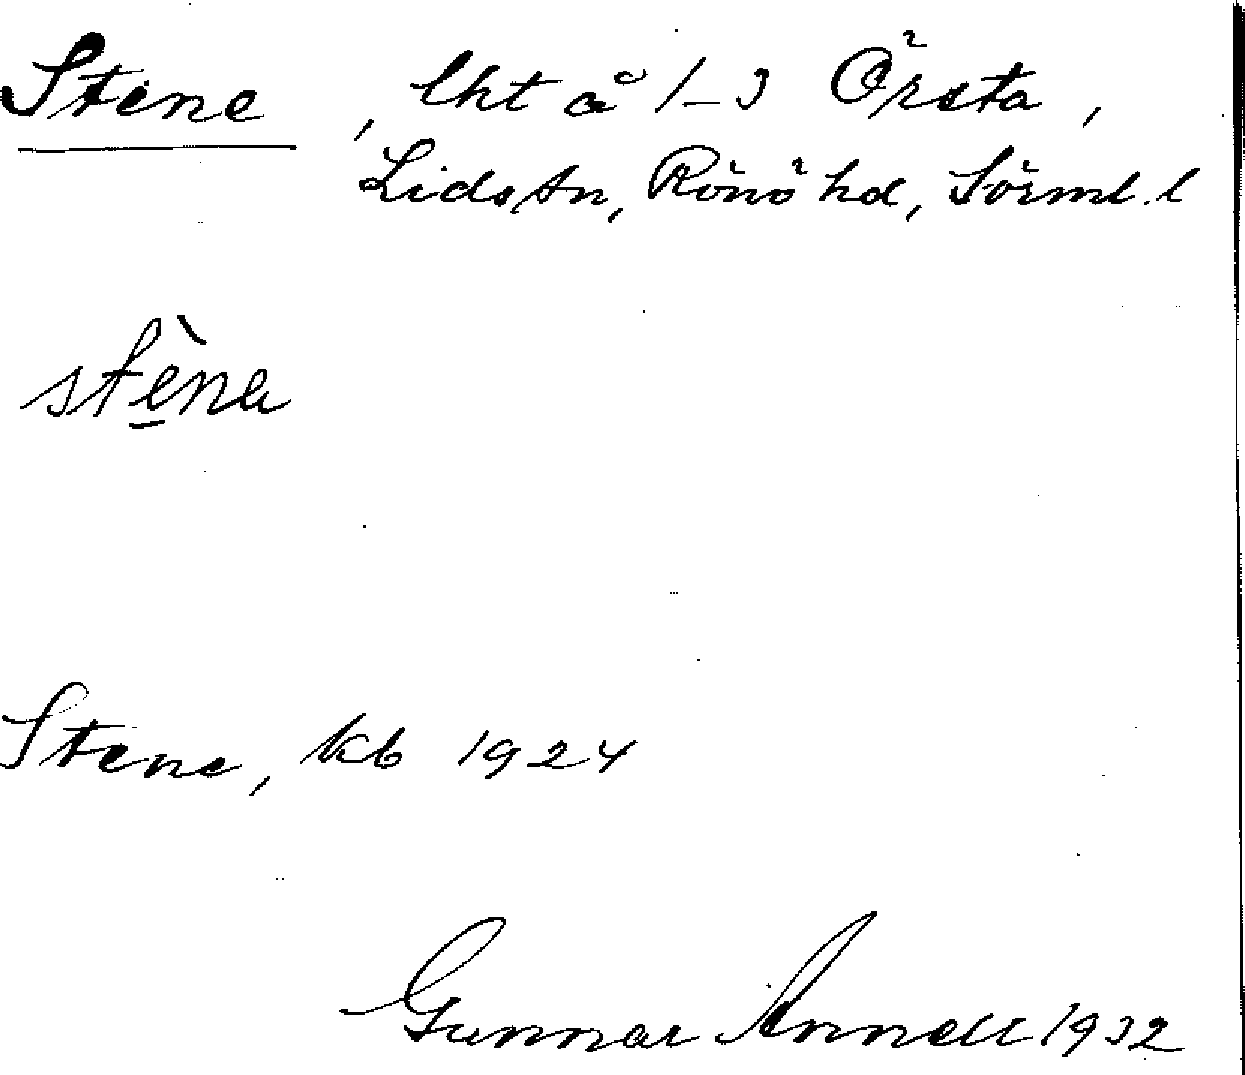 Stene, lht å 1-3 Örsta,
Lids sn, Rönö hd, Sörml. l
stè̠na
Stene, kb 1924
Gunnar Annell 1932